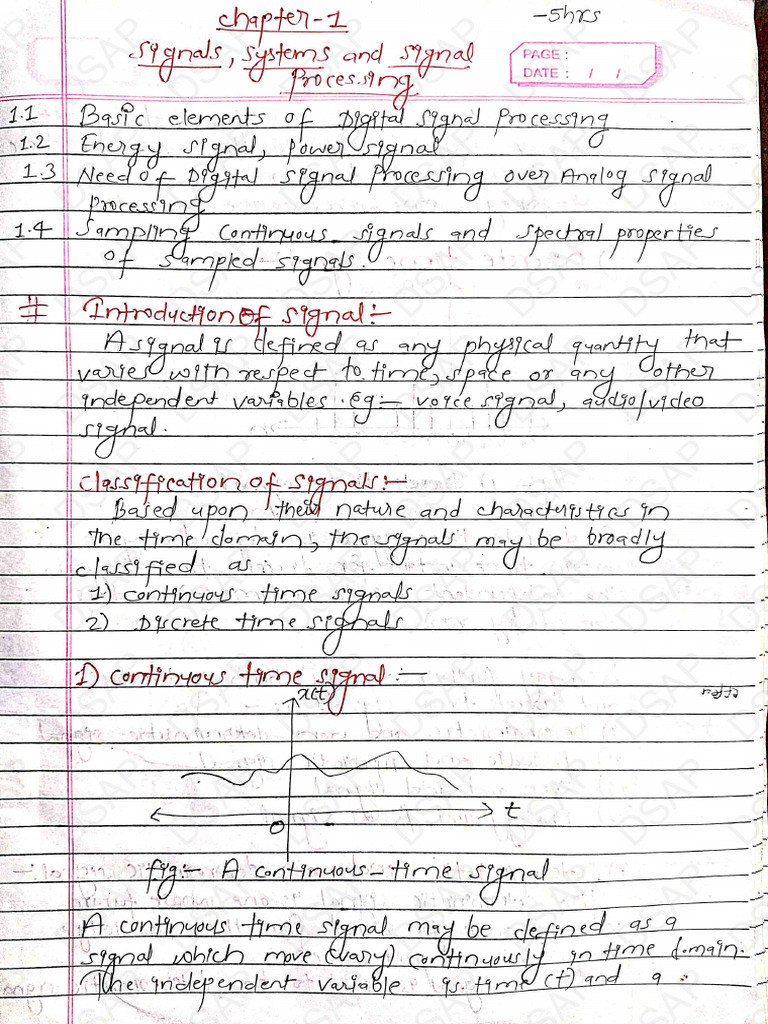 chapter-1 -5hrs
signals, systems and signal
processing
PAGE :
DATE : / /
1.1 Basic elements of Digital signal processing
1.2 Energy signal, power signal
1.3 Need of Digital signal processing over Analog signal
processing
1.4 Sampling continuous signals and spectral properties
of sampled signals.
# Introduction of signal:-
A signal is defined as any physical quantity that
varies with respect to time, space or any other
independent variables. eg:- voice signal, audio/video
signal.
classification of signals:-
Based upon their nature and characteristics in
the time domain, the signals may be broadly
classified as
1) continuous time signals
2) Discrete time signals
1) continuous time signal:-
x(t)
t
0
fig:- A continuous-time signal
A continuous time signal may be defined as a
signal which move (vary) continuously in time domain.
The independent variable is time (t) and a
DSAP